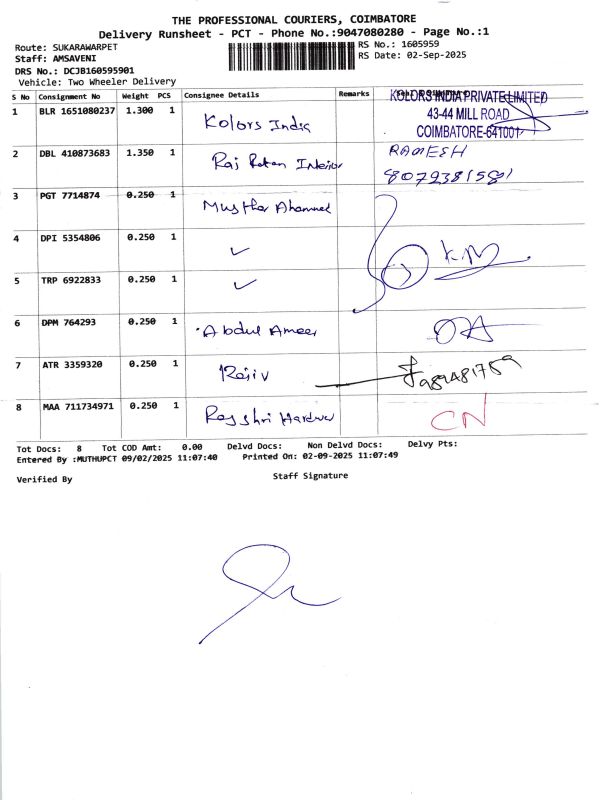 THE PROFESSIONAL COURIERS, COIMBATORE
Delivery Runsheet - PCT - Phone No.:9047080280 - Page No.:1
Route: SUKARAWARPET
RS No.: 1605959
Staff: AMSAVENI
RS Date: 02-Sep-2025
DRS No.: DCJB160595901
Vehicle: Two Wheeler Delivery
S No Consignment No Weight PCS Consignee Details Remarks
KOLORS INDIA PRIVATE LIMITED
43-44 MILL ROAD
COIMBATORE-641001
1 BLR 1651080237 1.300 1 Kolors India
2 DBL 410873683 1.350 1 Raj Ratan Interior RAMESH
8072381581
3 PGT 7714874 0.250 1 Musthar Ahammed
4 DPI 5354806 0.250 1 ✓
5 TRP 6922833 0.250 1 ✓
6 DPM 764293 0.250 1 Abdul Ameer
7 ATR 3359320 0.250 1 Rajiv
8 MAA 711734971 0.250 1 Rajshri Hardwar CN
Tot Docs: 8 Tot COD Amt: 0.00 Delvd Docs: Non Delvd Docs: Delvy Pts:
Entered By :MUTHUPCT 09/02/2025 11:07:40 Printed On: 02-09-2025 11:07:49
Verified By Staff Signature